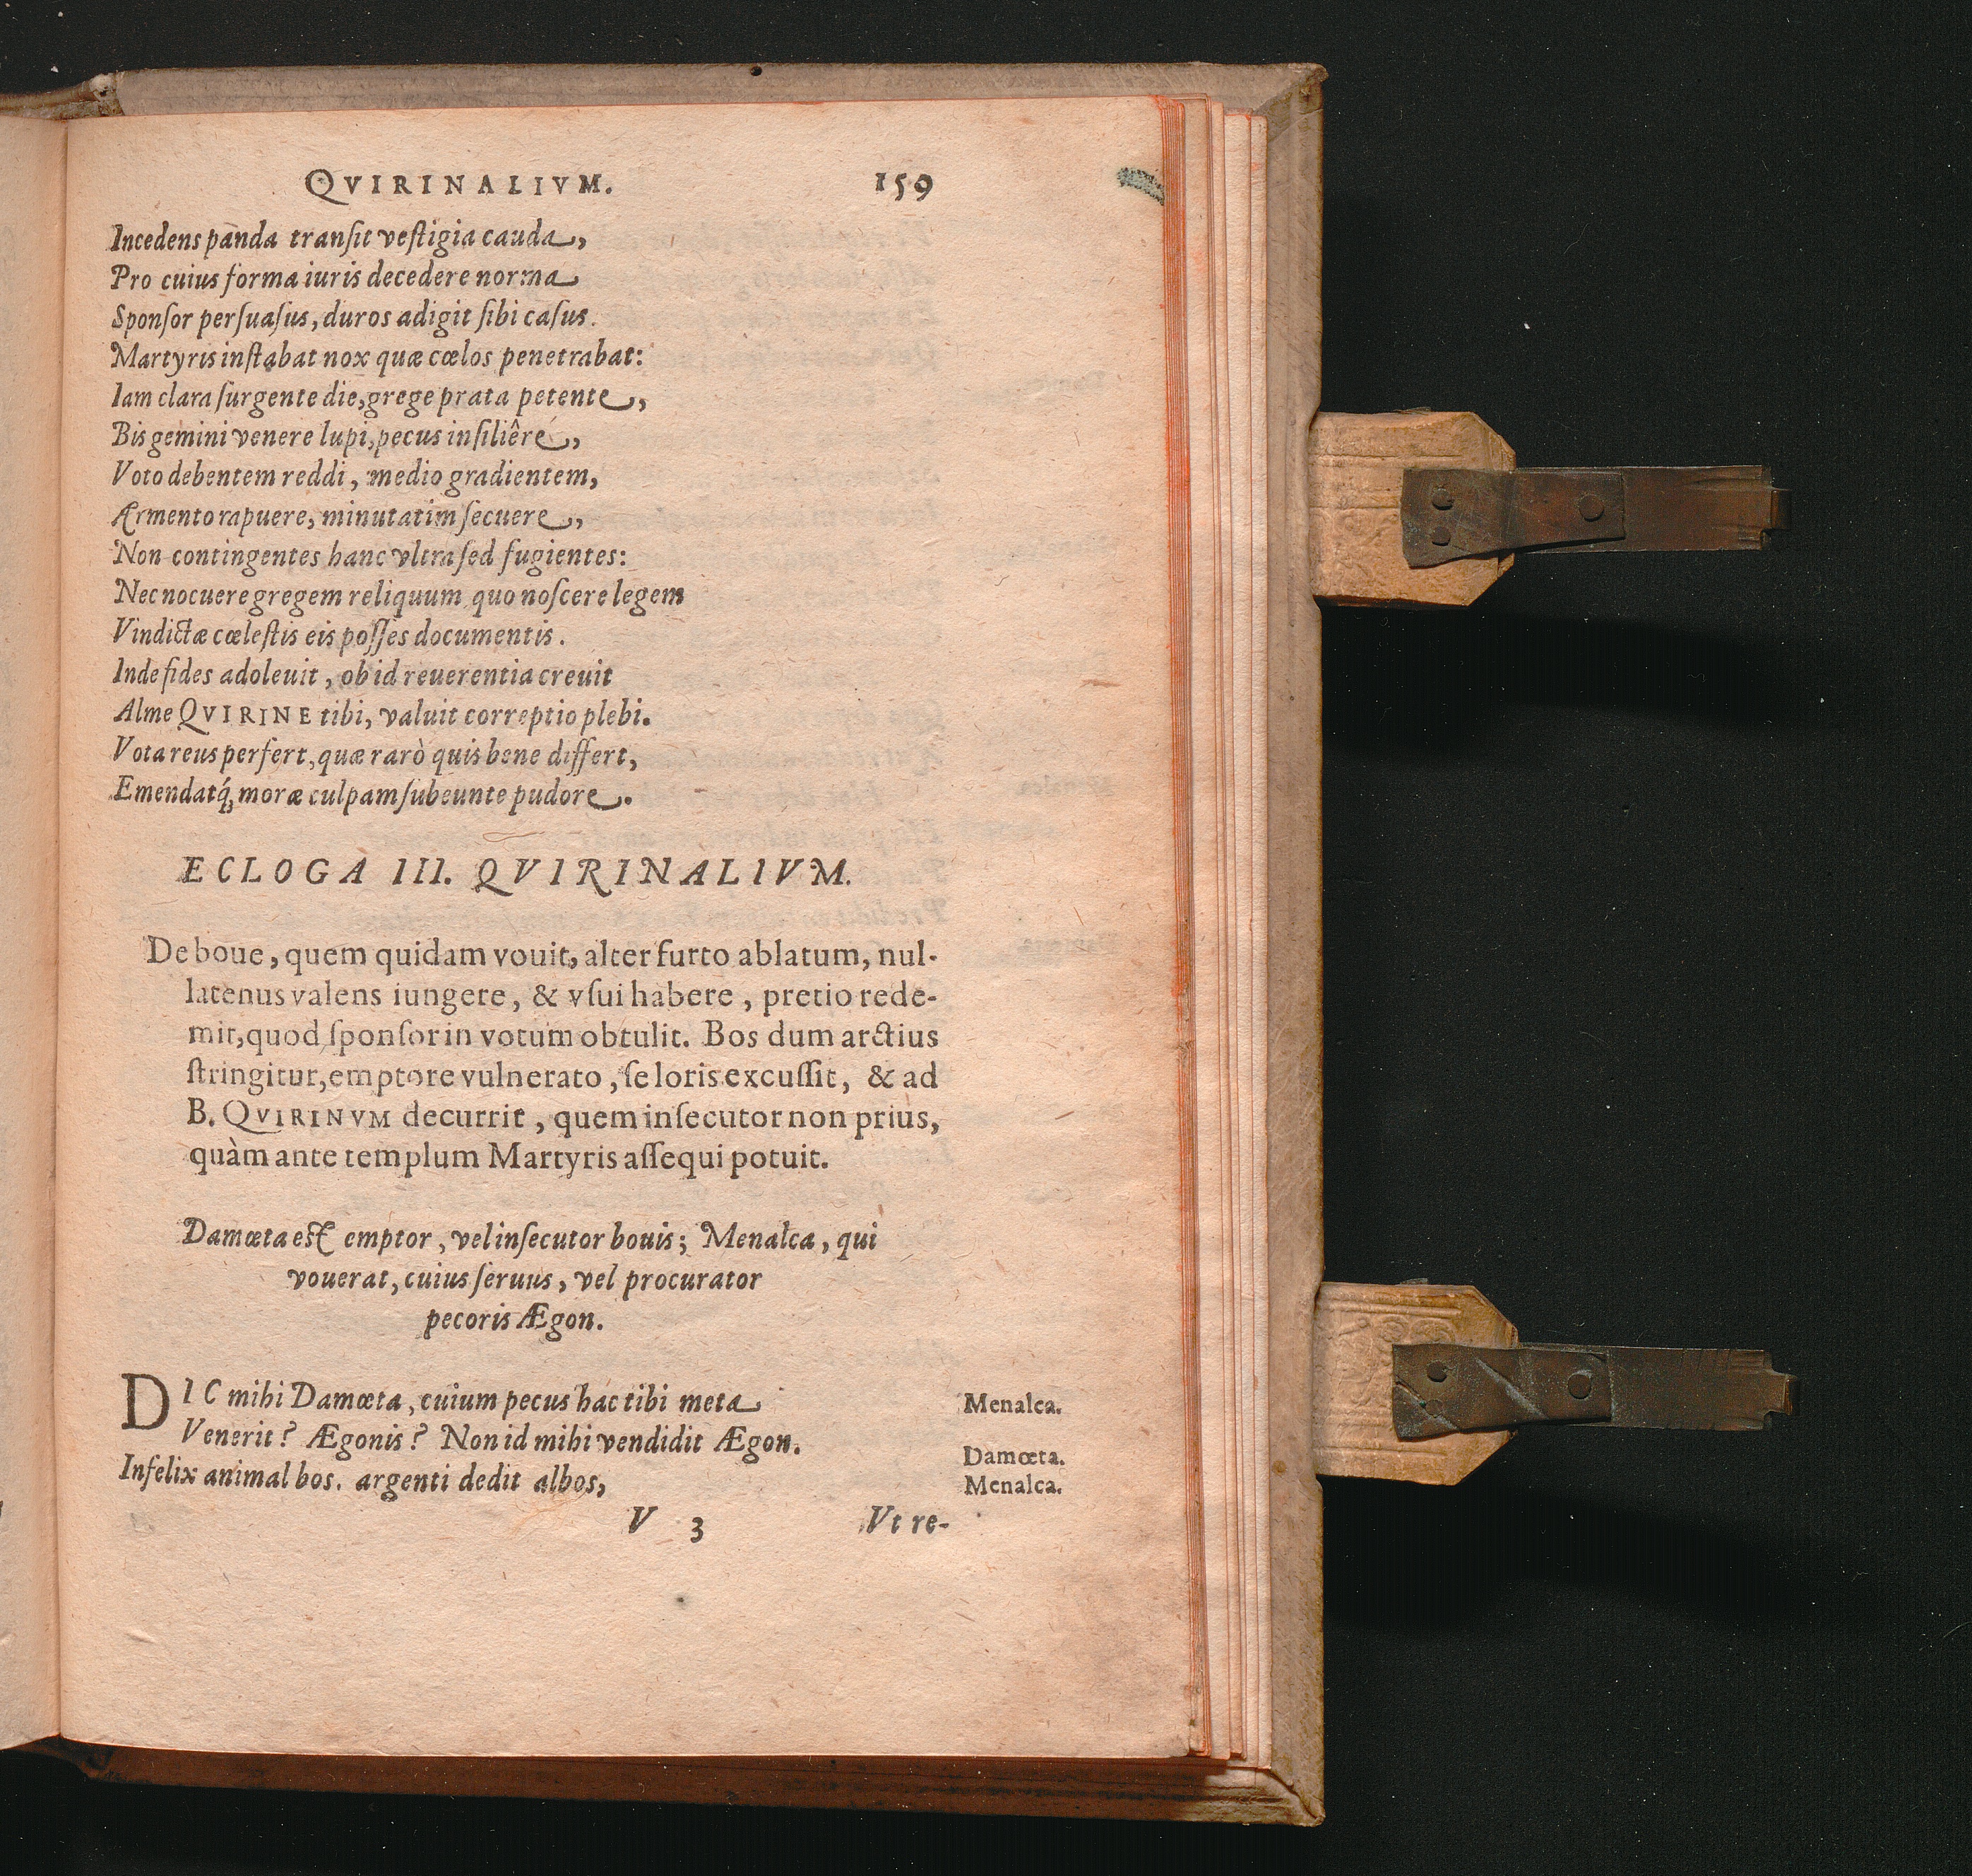 QVIRINALIVM. 159
Incedens panda tranſit veſtigia cauda,
Pro cuius forma iuris decedere norma
Sponſor perſuaſus, duros adigit ſibi caſus.
Martyris inſtabat nox quæ cœlos penetrabat:
Iam clara ſurgente die, grege prata petente,
Bis gemini venere lupi, pecus inſiliêre,
Voto debentem reddi, medio gradientem,
Armento rapuere, minutatim ſecuere,
Non contingentes hanc vltra ſed fugientes:
Nec nocuere gregem reliquum quo noſcere legem
Vindictæ cœleſtis eis poſſes documentis.
Inde fides adoleuit, ob id reuerentia creuit
Alme QVIRINE tibi, valuit correptio plebi.
Vota reus perfert, quæ rarò quis bene differt,
Emendatq́; moræ culpam ſubeunte pudore.
ECLOGA III. QVIRINALIVM.
De boue, quem quidam vouit, alter furto ablatum, nul-
latenus valens iungere, & vſui habere, pretio rede-
mit, quod ſponſor in votum obtulit. Bos dum arctius
ſtringitur, emptore vulnerato, ſe loris excuſſit, & ad
B. QVIRINVM decurrit, quem inſecutor non prius,
quàm ante templum Martyris aſſequi potuit.
Damœta eſt emptor, vel inſecutor bouis; Menalca, qui
vouerat, cuius ſeruus, vel procurator
pecoris Ægon.
DIC mihi Damœta, cuium pecus hac tibi meta Menalca.
Venerit? Ægonis? Non id mihi vendidit Ægon. Damœta.
Infelix animal bos. argenti dedit albos, Menalca.
V 3 Vt re-